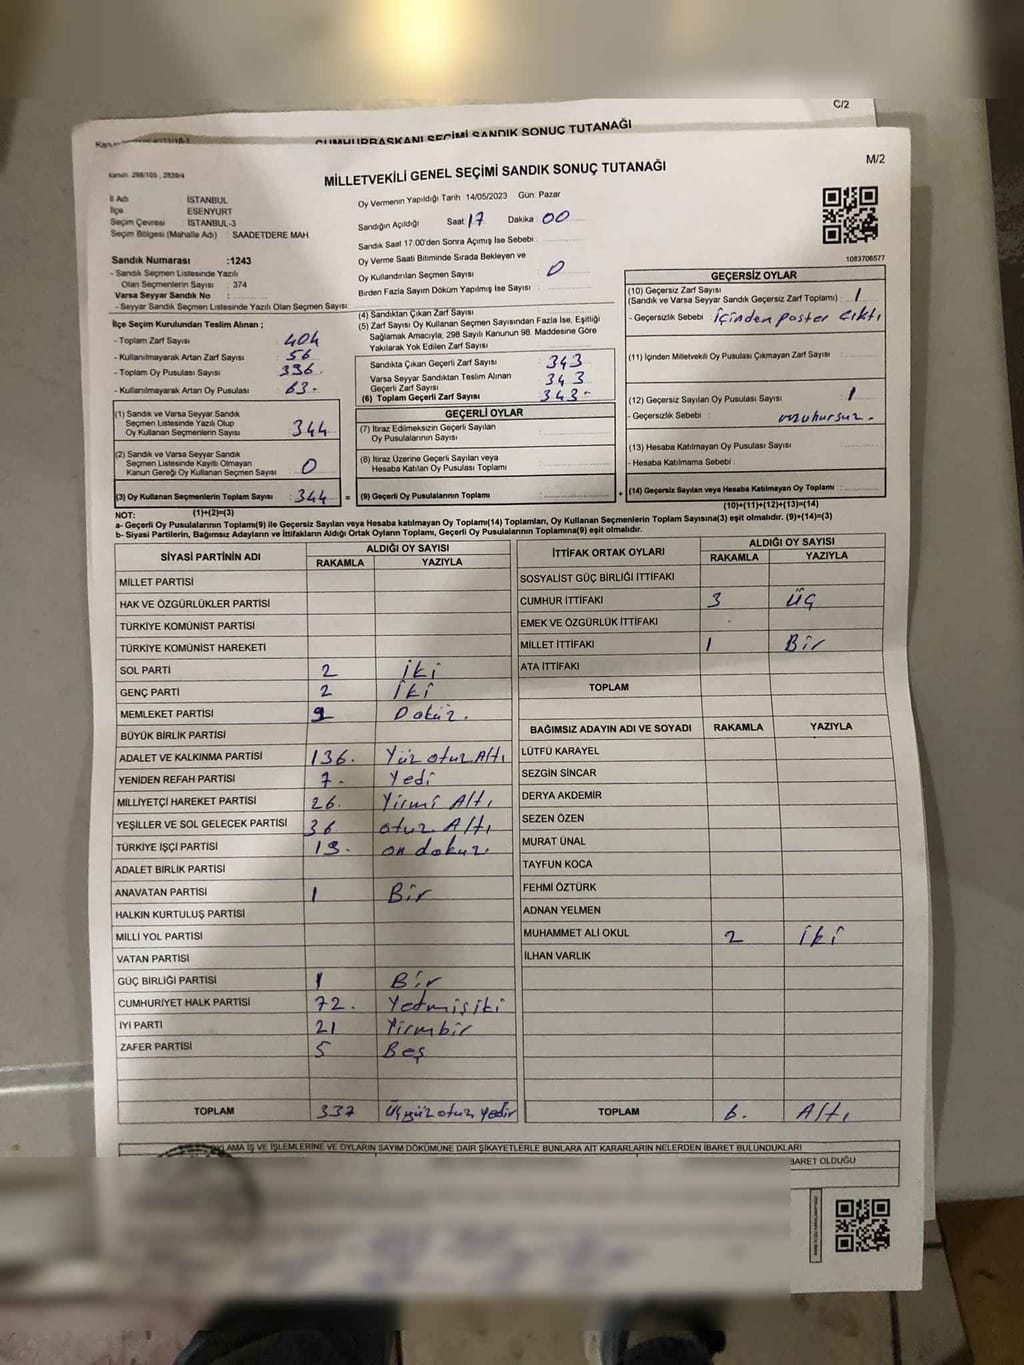 C/2
CUMHURBAŞKANI SEÇİMİ SANDIK SONUÇ TUTANAĞI
M/2
MİLLETVEKİLİ GENEL SEÇİMİ SANDIK SONUÇ TUTANAĞI
İl Adı İSTANBUL
İlçe ESENYURT
Seçim Çevresi İSTANBUL-3
Seçim Bölgesi (Mahalle Adı) SAADETDERE MAH
Sandık Numarası :1243
- Sandık Seçmen Listesinde Yazılı
Olan Seçmenlerin Sayısı : 374
Varsa Seyyar Sandık No :
- Seyyar Sandık Seçmen Listesinde Yazılı Olan Seçmen Sayısı:
İlçe Seçim Kurulundan Teslim Alınan ;
- Toplam Zarf Sayısı : 404
- Kullanılmayarak Artan Zarf Sayısı : 56
- Toplam Oy Pusulası Sayısı : 336.
- Kullanılmayarak Artan Oy Pusulası : 63-
(1) Sandık ve Varsa Seyyar Sandık
Seçmen Listesinde Yazılı Olup
Oy Kullanan Seçmenlerin Sayısı : 344
(2) Sandık ve Varsa Seyyar Sandık
Seçmen Listesinde Kayıtlı Olmayan
Kanun Gereği Oy Kullanan Seçmen Sayısı : 0
(3) Oy Kullanan Seçmenlerin Toplam Sayısı : 344 =
Oy Vermenin Yapıldığı Tarih 14/05/2023 Gün: Pazar
Sandığın Açıldığı Saat : 17 Dakika : 00
Sandık Saat 17:00'den Sonra Açımış İse Sebebi :
Oy Verme Saati Bitiminde Sırada Bekleyen ve
Oy Kullandırılan Seçmen Sayısı : 0
Birden Fazla Sayım Döküm Yapılmış İse Sayısı :
(4) Sandıktan Çıkan Zarf Sayısı :
(5) Zarf Sayısı Oy Kullanan Seçmen Sayısından Fazla İse, Eşitliği
Sağlamak Amacıyla, 298 Sayılı Kanunun 98. Maddesine Göre
Yakılarak Yok Edilen Zarf Sayısı :
Sandıkta Çıkan Geçerli Zarf Sayısı : 343
Varsa Seyyar Sandıktan Teslim Alınan
Geçerli Zarf Sayısı : 343
(6) Toplam Geçerli Zarf Sayısı : 343-
GEÇERLİ OYLAR
(7) İtiraz Edilmeksizin Geçerli Sayılan
Oy Pusulalarının Sayısı :
(8) İtiraz Üzerine Geçerli Sayılan veya
Hesaba Katılan Oy Pusulası Toplamı :
(9) Geçerli Oy Pusulalarının Toplamı : +
1083706577
GEÇERSİZ OYLAR
(10) Geçersiz Zarf Sayısı
(Sandık ve Varsa Seyyar Sandık Geçersiz Zarf Toplamı) : 1
- Geçersizlik Sebebi : içinden paster çıktı
(11) İçinden Milletvekili Oy Pusulası Çıkmayan Zarf Sayısı :
(12) Geçersiz Sayılan Oy Pusulası Sayısı : 1
- Geçersizlik Sebebi : muhursuz.
(13) Hesaba Katılmayan Oy Pusulası Sayısı :
- Hesaba Katılmama Sebebi :
(14) Geçersiz Sayılan veya Hesaba Katılmayan Oy Toplamı :
NOT: (1)+(2)=(3) (10)+(11)+(12)+(13)=(14)
a- Geçerli Oy Pusulalarının Toplamı(9) ile Geçersiz Sayılan veya Hesaba katılmayan Oy Toplamı(14) Toplamları, Oy Kullanan Seçmenlerin Toplam Sayısına(3) eşit olmalıdır. (9)+(14)=(3)
b- Siyasi Partilerin, Bağımsız Adayların ve İttifakların Aldığı Ortak Oyların Toplamı, Geçerli Oy Pusulalarının Toplamına(9) eşit olmalıdır.
SİYASİ PARTİNİN ADI ALDIĞI OY SAYISI
RAKAMLA YAZIYLA
MİLLET PARTİSİ
HAK VE ÖZGÜRLÜKLER PARTİSİ
TÜRKİYE KOMÜNİST PARTİSİ
TÜRKİYE KOMÜNİST HAREKETİ
SOL PARTİ 2 İki
GENÇ PARTİ 2 İki
MEMLEKET PARTİSİ 9 Dokuz.
BÜYÜK BİRLİK PARTİSİ
ADALET VE KALKINMA PARTİSİ 136. Yüz otuz Altı
YENİDEN REFAH PARTİSİ 7- Yedi
MİLLİYETÇİ HAREKET PARTİSİ 26. Yirmi Altı
YEŞİLLER VE SOL GELECEK PARTİSİ 36 otuz Altı
TÜRKİYE İŞÇİ PARTİSİ 19. on dokuz.
ADALET BİRLİK PARTİSİ
ANAVATAN PARTİSİ 1 Bir
HALKIN KURTULUŞ PARTİSİ
MİLLİ YOL PARTİSİ
VATAN PARTİSİ
GÜÇ BİRLİĞİ PARTİSİ 1 Bir
CUMHURİYET HALK PARTİSİ 72. Yetmişiki
İYİ PARTİ 21 Yirmbir
ZAFER PARTİSİ 5 Beş
TOPLAM 337 Üçyüz otuz yedir
İTTİFAK ORTAK OYLARI ALDIĞI OY SAYISI
RAKAMLA YAZIYLA
SOSYALİST GÜÇ BİRLİĞİ İTTİFAKI
CUMHUR İTTİFAKI 3 Üç
EMEK VE ÖZGÜRLÜK İTTİFAKI -
MİLLET İTTİFAKI 1 Bir
ATA İTTİFAKI
TOPLAM
BAĞIMSIZ ADAYIN ADI VE SOYADI RAKAMLA YAZIYLA
LÜTFÜ KARAYEL
SEZGİN SİNCAR
DERYA AKDEMİR
SEZEN ÖZEN
MURAT ÜNAL
TAYFUN KOCA
FEHMİ ÖZTÜRK
ADNAN YELMEN
MUHAMMET ALİ OKUL 2 iki
İLHAN VARLIK
TOPLAM 6. Altı
İŞ VE İŞLEMLERİNE VE OYLARIN SAYIM DÖKÜMÜNE DAİR ŞİKAYETLERLE BUNLARA AİT KARARLARIN NELERDEN İBARET BULUNDUKLARI
OLDUĞU